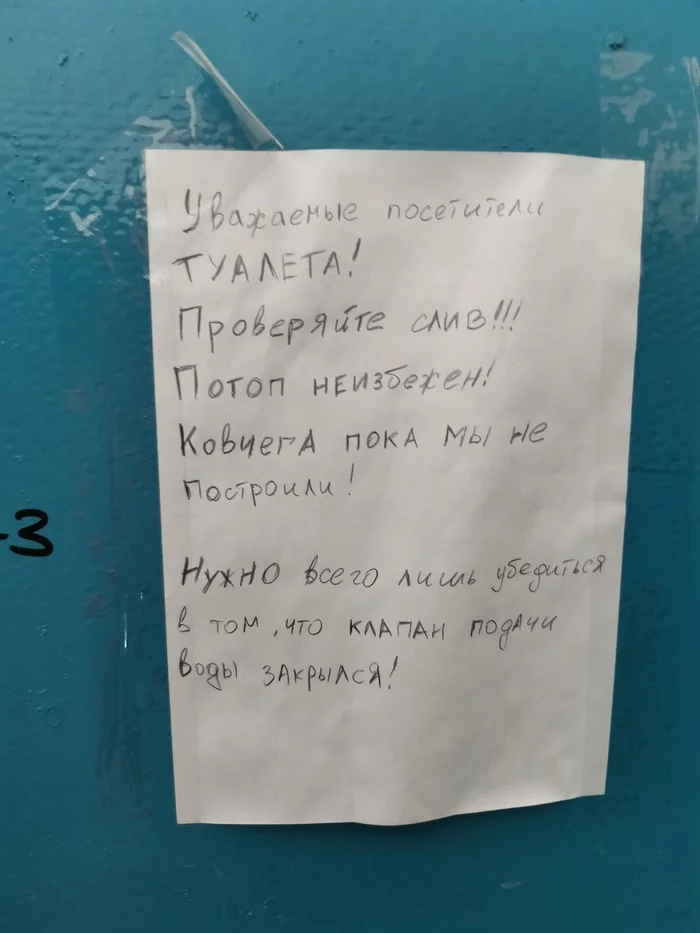 Уважаемые посетители
ТУАЛЕТА!
Проверяйте слив!!!
Потоп неизбежен!
Ковчега пока мы не
построили!
Нужно всего лишь убедиться
в том, что клапан подачи
воды закрылся!
-3